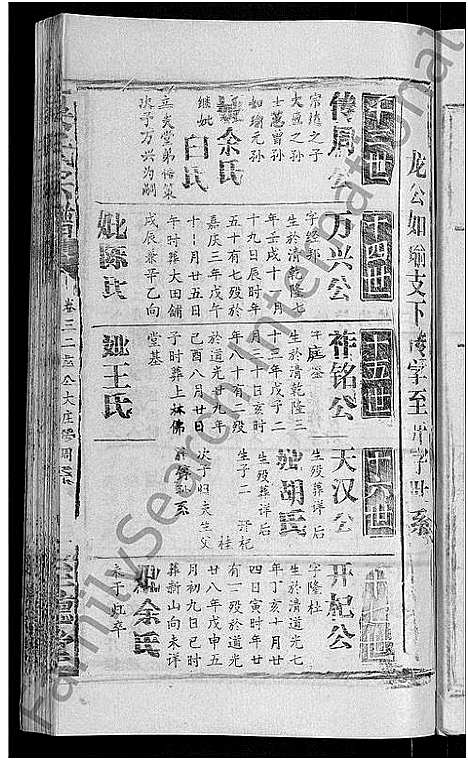 龙公如瑜支下传字至开字世系
十三世
传周公
宗琦之子
大烈之孙
士蕙曾孙
如瑜元孙
妣余氏
继妣白氏
立炎堂弟怡策
次子万兴为嗣
十四世
万兴公
字经邦
生於清乾隆七
年壬戌十一月
十九日辰时年
五十有七殁於
嘉庆三年戊午
十一月廿五日
午时葬大田铺
戌辰兼辛乙向
妣陈氏
十五世
祚铭公
字庭鉴
生於清乾隆三
十三年戊子二
月三十日亥时
年八十有二殁
於道光廿九年
己酉八月廿日
子时葬上林佛
堂基
妣王氏
十六世
天汉公
生殁葬详后
妣胡氏
生殁葬详后
生子二 开杞
桂
次子归夫生父
祚锦到系
十七世
开杞公
字隆杜
生於清道光七
年丁亥十月廿
四日寅时年廿
有一殁於道光
廿八年戊申五
月初九日巳时
葬新山向未详
妣余氏
未于归卒
FamilySearch International